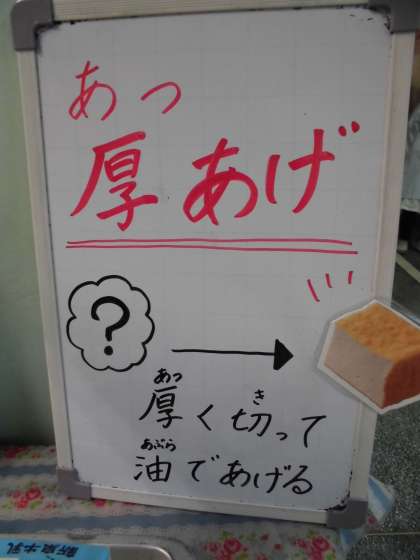 あっ
厚あげ
?
あっ き
厚く切って
あぶら
油であげる